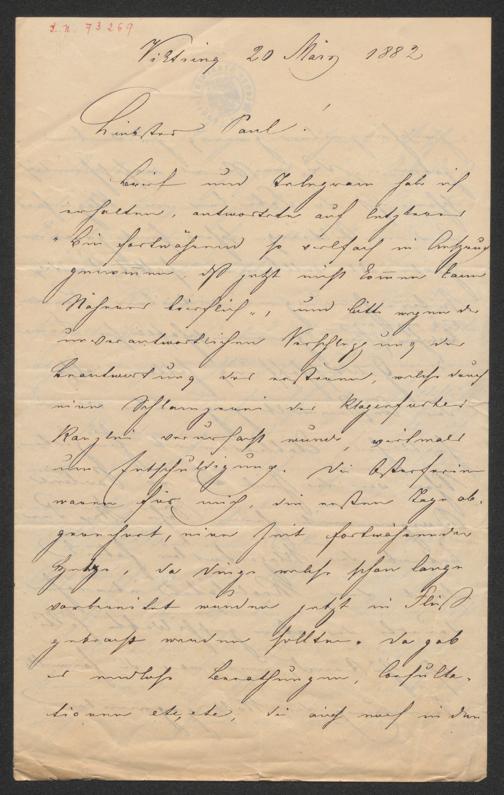 I. N. 73269
Viktring 20 März 1882
Liebster Paul!
Brief und Telegram hab ich
erhalten, antwortete auf letzteres
"Bin fortwährend so vielfach in Anspruch
genommen dß jetzt nicht kommen kann
Näheres brieflich", und bitte wegen der
unverantwortlichen Verschleppung der
Beantwortung des ersteren, welche durch
eine Schlamperei der Klagenfurter
Kanzlei verursacht wurde, vielmals
um Entschuldigung. Die Osterferien
waren für mich, die ersten Tage ab-
gerechnet, eine Zeit fortwährender
Hetze, da Dinge welche schon lange
vorbereitet wurden jetzt in Fluß
gebracht werden sollten. Da gab
es endlose Berathungen, Consulta-
tionen etc, etc, die auch noch in den